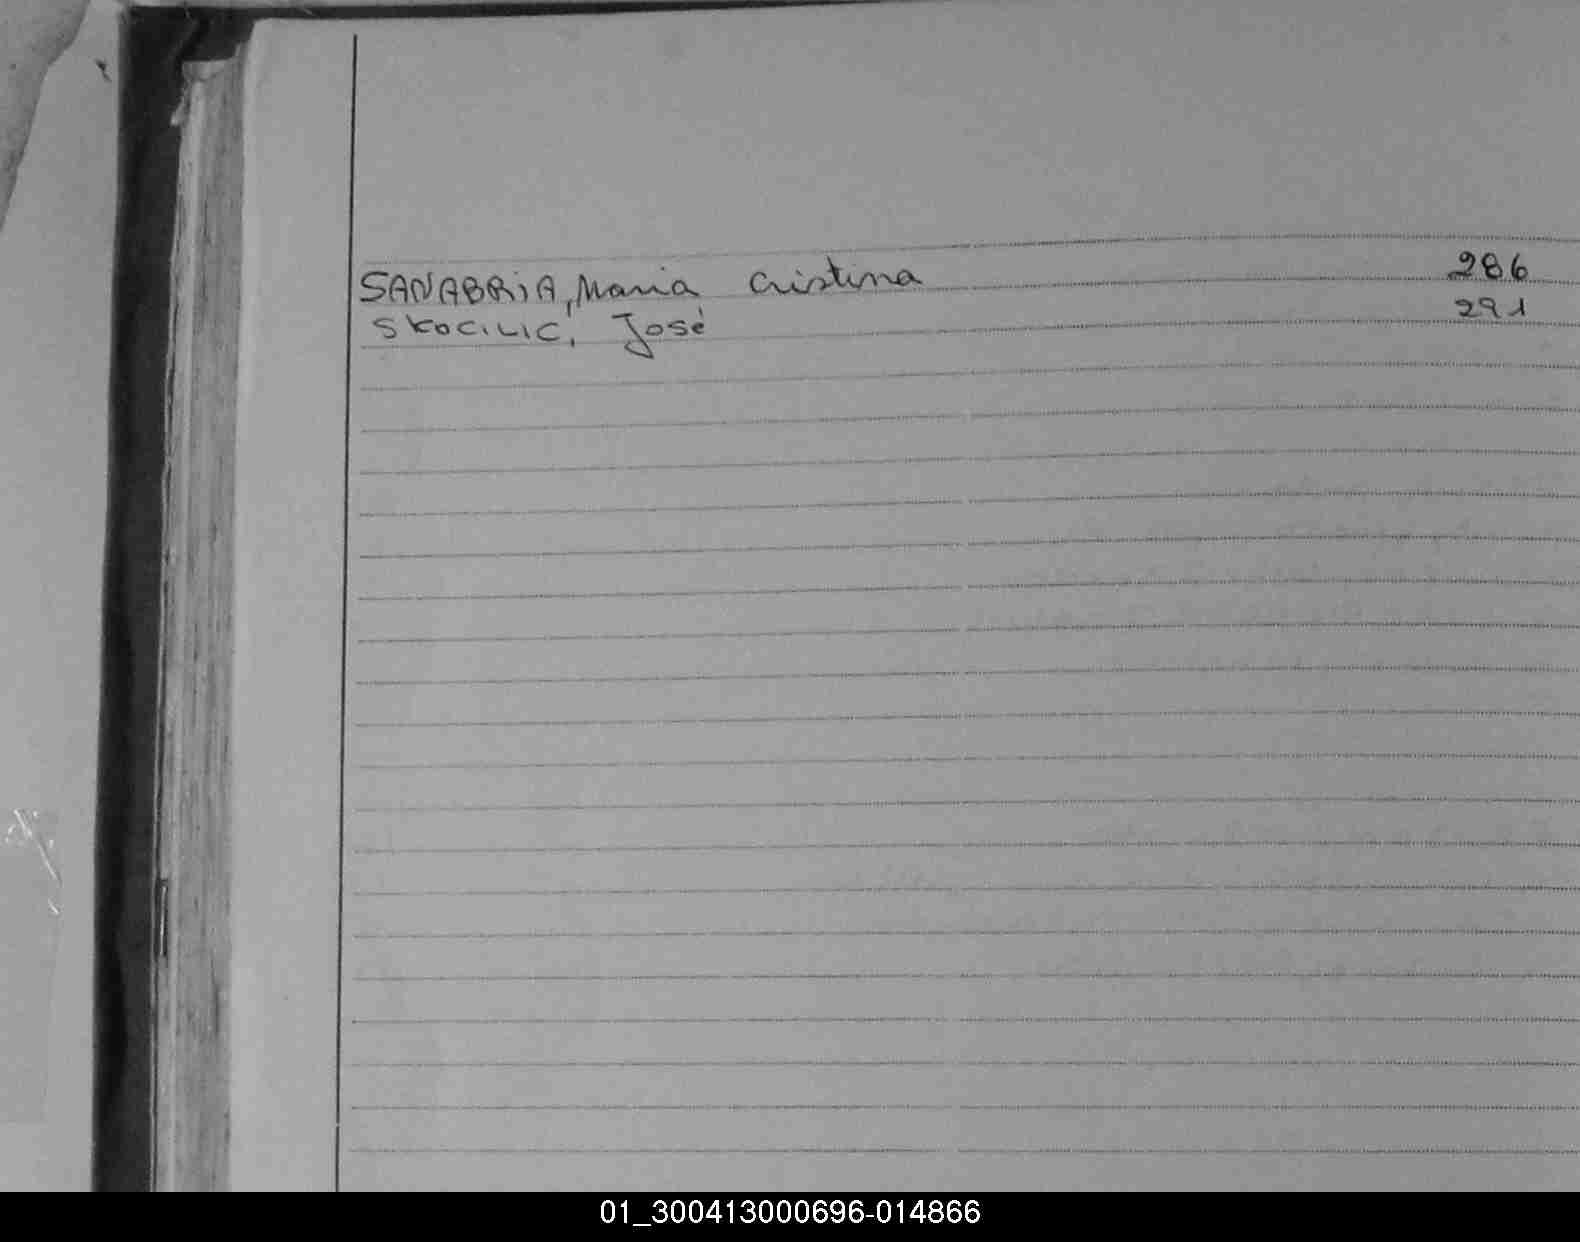 SANABRiA, Maria Cristina 286
SKOCILIC, José 291
01_300413000696-014866